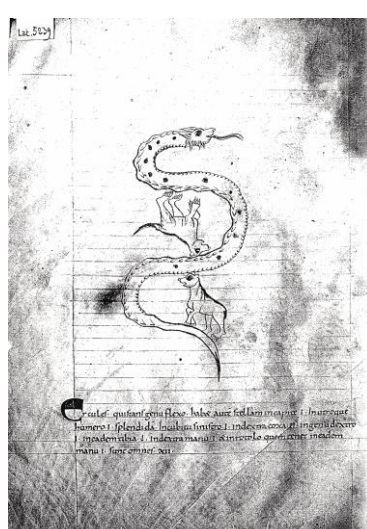 Lat. 5239
Ercules qui stans genu flexo habe autē stellam in capite I. In utroque
humero I. splendida. In cubitu sinistro I. In dextra coxa II. In genu dextro
I. in eadem tibia I. In dextra manu I.
manu I. sunt omnes XII